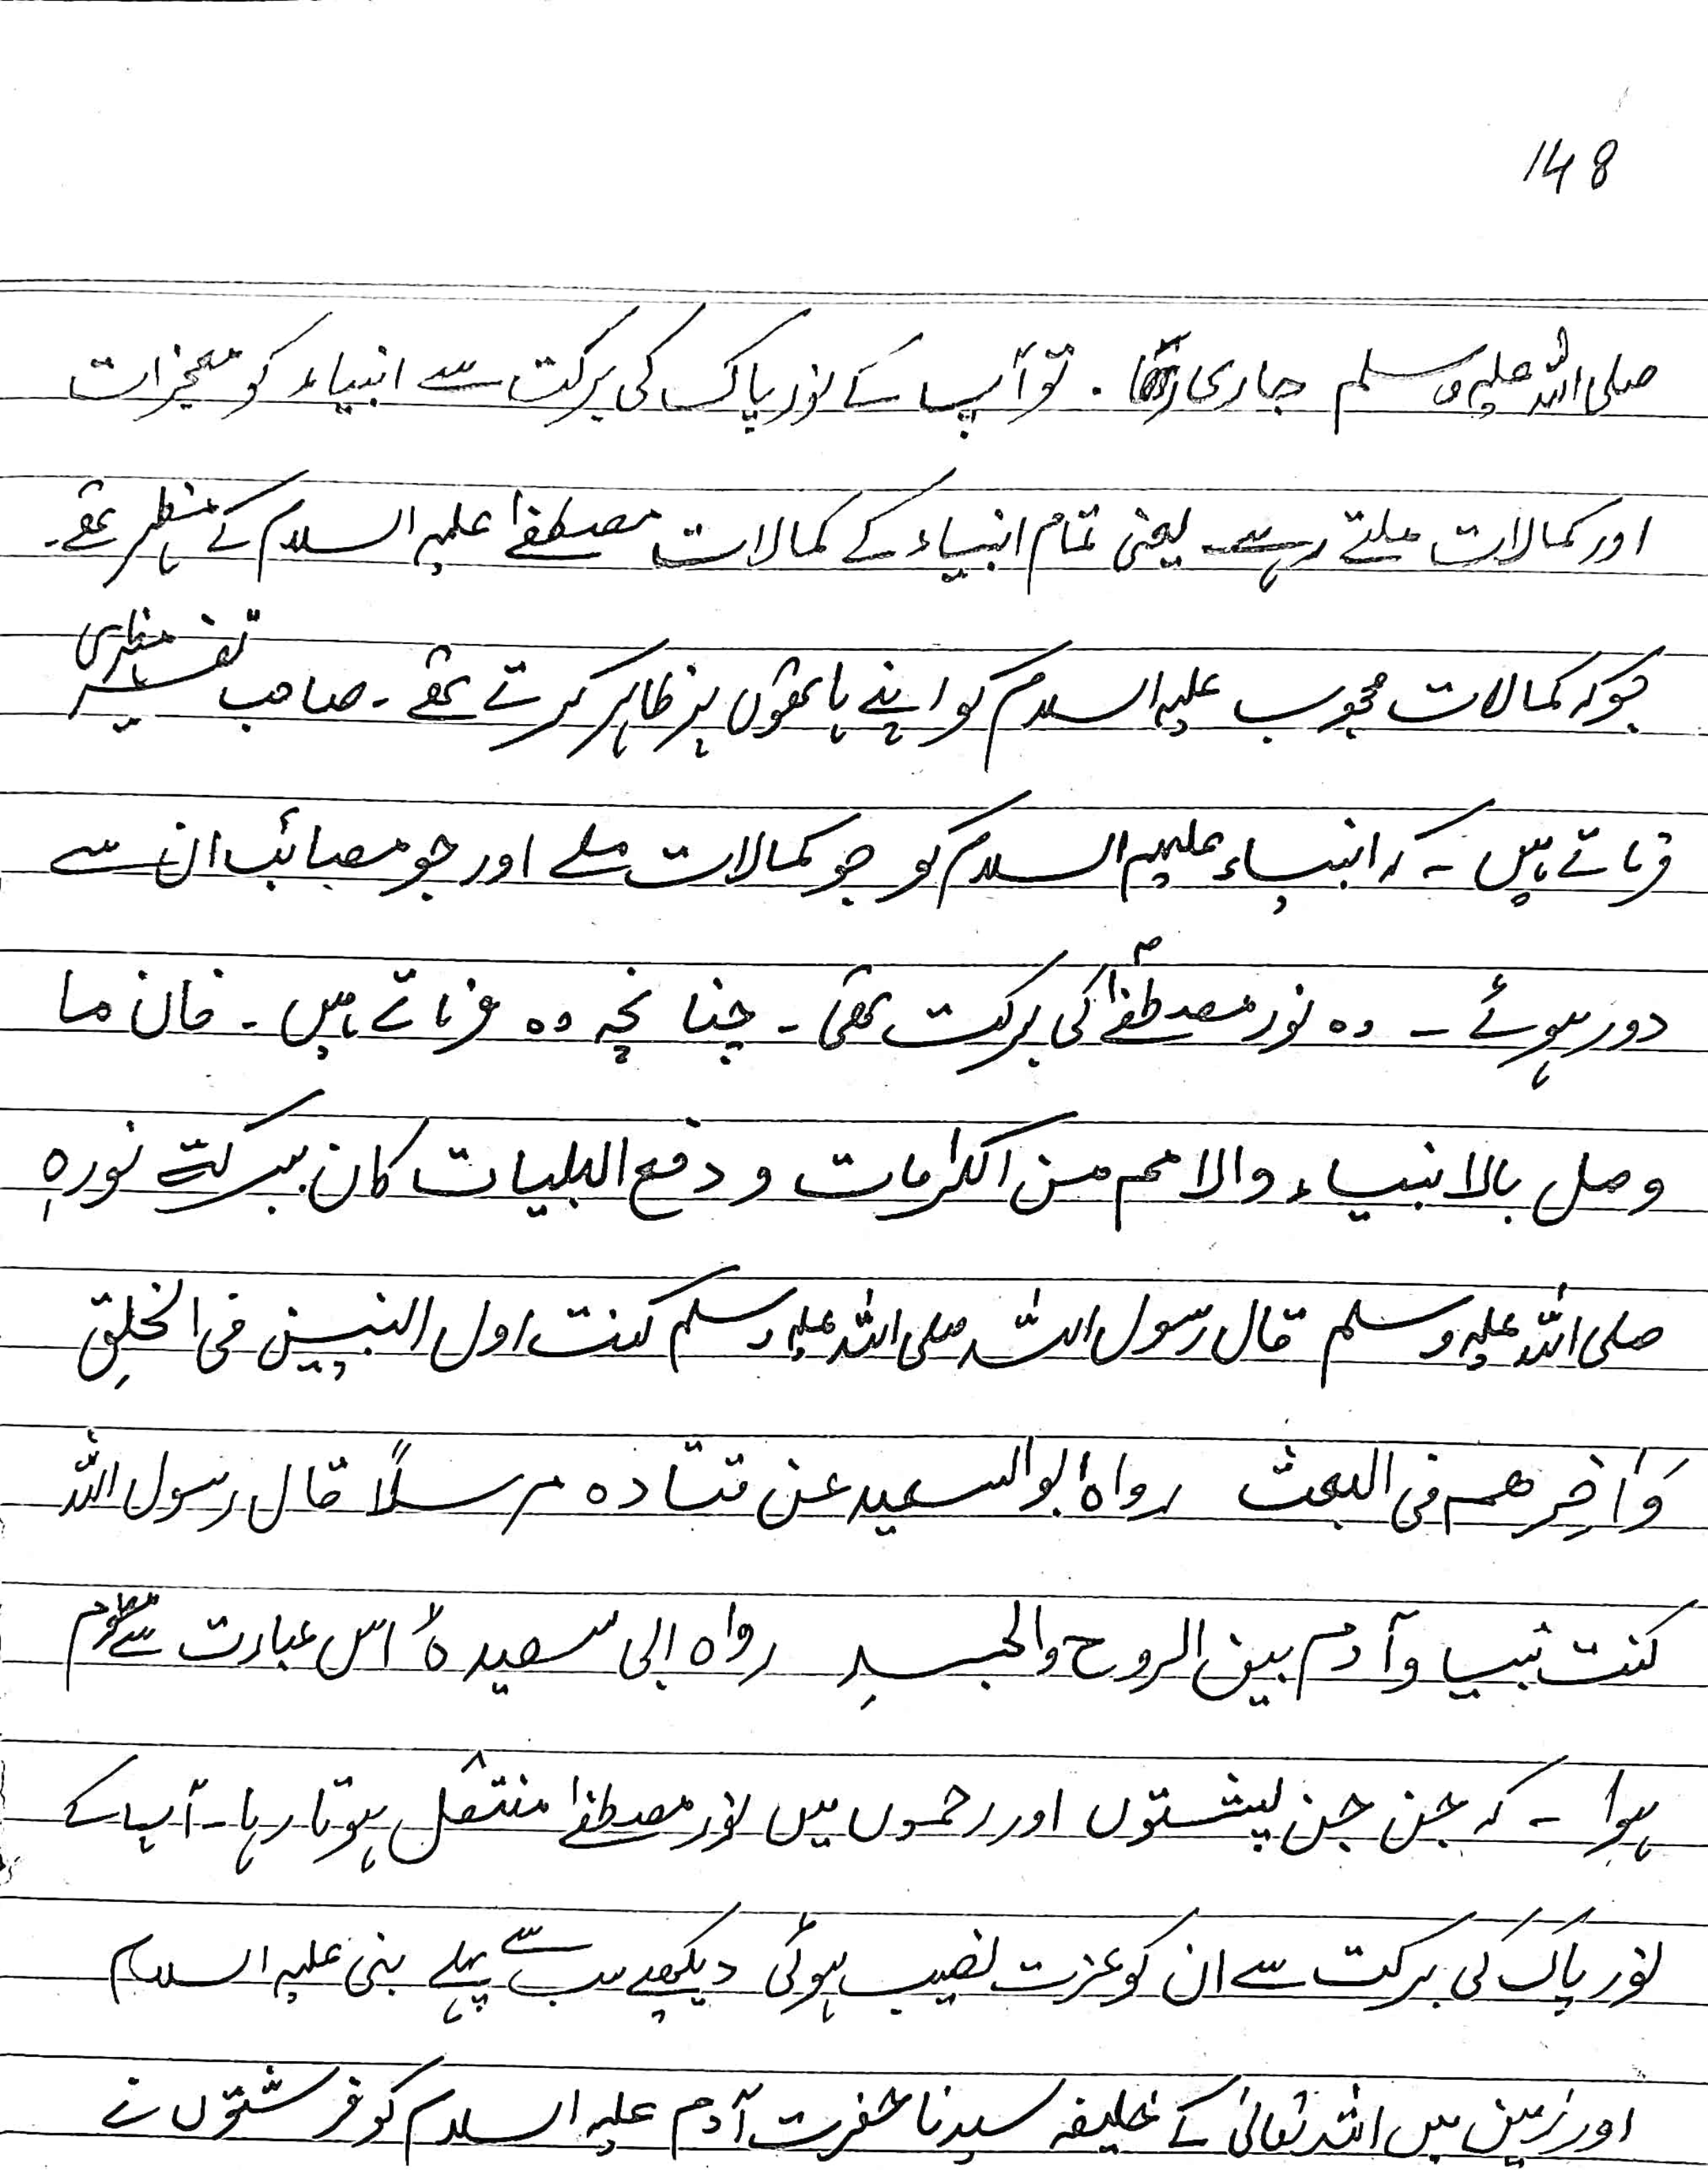 148
صلی اللہ علیہ وسلم جاری رہا ۔ تو آپ کے نور پاک کی برکت سے انبیاء کو معجزات
اور کمالات ملتے رہے ۔ یعنی تمام انبیاء کے کمالات مصطفےٰ علیہ السلام کے مظہر تھے ۔
جو کہ کمالات محبوب علیہ السلام کو اپنے ہاتھوں پر ظاہر کرتے تھے ۔ صاحب تفسیر مظہری
فرماتے ہیں ۔ کہ انبیاء علیہم السلام کو جو کمالات ملے اور جو مصائب ان سے
دور ہوئے ۔ وہ نور مصطفےٰؐ کی برکت تھی ۔ چنانچہ وہ فرماتے ہیں ۔ فان ما
وصل بالانبیاء والامم من الکرامات و دفع البلیات کان ببرکۃ نورہٖ
صلی اللہ علیہ وسلم قال رسول اللہ صلی اللہ علیہ وسلم کنت اول النبیین فی الخلقِ
وَاٰخِرھم فی البعث رواہُ ابو السعید عن قتادہ مرسلاً قال رسول اللہ
کنت نبیا وآدم بین الروح والجسدِ رواہ ابی سعیدہُ اس عبادت سے معلوم
ہوا ۔ کہ جن جن پشتوں اور رحموں میں نور مصطفےٰ منتقل ہوتا رہا ۔ آپ کے
نور پاک کی برکت سے ان کو عزت نصیب ہوئی دیکھیے سب سے پہلے نبی علیہ السلام
اور زمین میں اللہ تعالیٰ کے خلیفہ سیدنا حضرت آدم علیہ السلام کو فرشتوں نے